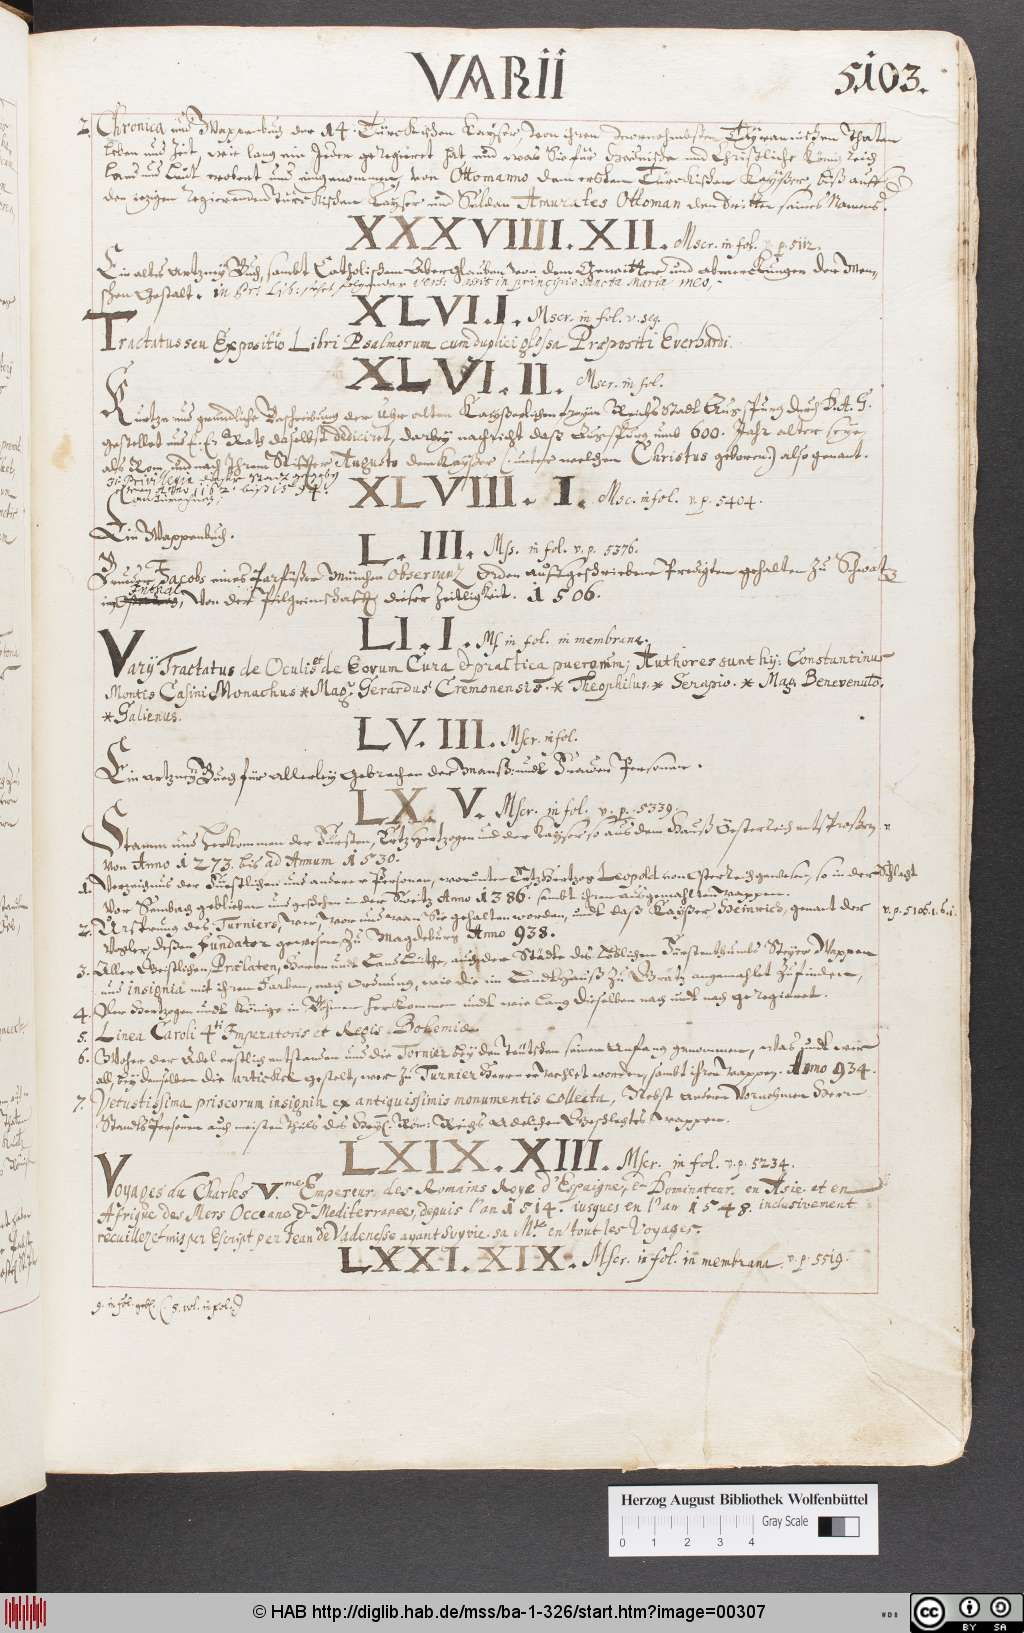 VARII
5103.
2. Chronica und Wappenbuch der 14. Türckischen Kayser, von ihren vornehmbsten Tÿrannischen Thaten
leben und Zeit, wie lang ein Jeder geregieret hat und was Sie für Heidnische und Christliche Königreich
land und Leut erobert und eingenommen, von Ottomanno dem ersten Türckischen Kaÿser, biß auff
den iezigen regierenden Türckischen Kayser und Sultan Amurates Ottoman den dritten seines Namens.
XXXVIIII. XII. Mscr. in fol. v. p. 5112.
Ein altes artzneÿ Buch, sambt Catholischem Aberglauben von dem Gewitter und abmerckungen der Men-
schen Gestalt. in principio sancta Maria meo,
XLVI. I. Mscr. in fol. v. seq.
Tractatus seu Expositio Libri Psalmorum cum duplici glossa Præpositi Everhardi.
XLVI. II. Mscr. in fol.
Kurtze und gründliche Beschreibung der Uhralten Kaÿserlichen freyen Reichs Stadt Augspurg durch P. A. G.
gestellet und E. E. Rath daselbst dediciret, darbey nachricht daß Augspurg umb 600. Jahr älter seye
als Rom, und nach Ihrem Stiffter Augusto dem Kayser (unter welchem Christus geboren) also genant.
XLVIII. I. Msc. in fol. v. p. 5404.
Ein Wappenbuch.
L. III. Mss. in fol. v. p. 5376.
Bruder Jacobs eines Parfüßer München Observantz Orden auffgeschriebene Predigten gehalten zu Schwatz
Inthal
im, von der Pilgrimschafft dieser Zeitligkeit. 1506.
LI. I. Ms. in fol. in membrana.
Varÿ Tractatus de Oculis et de Eorum Cura et practica puerorum, Authores sunt hij: Constantinus
Montis Casini Monachus * Mag. Gerardus Cremonensis. * Theophilus. * Serapio. * Mag. Benevenuto.
* Galienus.
LV. III. Mscr. in fol.
Ein artzneÿ Buch für allerley Gebrechen der Manß: undt Frauen Personen.
LX. V. Mscr. in fol. v. p. 5339.
Stamm und Herkommen der Fürsten, Ertzhertzogen und der Kayser so aus dem Hauß Oesterreich entsproßen
von Anno 1273. bis ad Annum 1530.
1. Verzeignus der Fürstlichen und anderer Personen, worunter Ertzhertzog Leopold von Österreich gewesen, so in der Schlacht
vor Sembach geblieben und geschehen in der Sveitz Anno 1386. sambt ihren ausgemahlten wappen.
2. Ursprung des Turniers, wen, wo und wan Sie gehalten worden, undt daß Kaÿser Heinrich, genant der v. p. 5106.1.6.
Vogler, deßen fundator gewesen, zu Magdeburg Anno 938.
3. Aller Geistlichen, Prælaten, Herren und Landleuthe, auch der Städte des Löblichen Fürstenthumbs Steÿer Wappen
und insignia mit ihren Farben, nach Ordnung, wie die im Landthauß zu Grätz angemahlet zufinden,
4. Der Hertzogen undt Könige in Böhmen Herkommen undt wie lang dieselben nach undt nach geregieret.
5. Linea Caroli 4ti Imperatoris et Regis Bohemiæ
6. Woher der Adel erstlich entstanden und die Tornier bey den Teütschen seinen Anfang genommen, was undt wie
all, bey denselben die artickel gestelt, wer zu Turnier Herren erwehlet worden, sambt ihren wappen. Anno 934.
7. Vetustissima priscorum insignia ex antiquissimis monumentis collecta, Nebst andern Vornehmen Herrn
Stands Personen auch meistentheils des Heÿl. Röm: Reichs Adelichen Geschlechtes Wappen.
LXIX. XIII. Mscr. in fol. v. p. 5234.
Voyages du Charles V.me Empereur des Romains Roye d'Espaigne, & Dominateur en Asie et en
Afrique des Mers Occeane & Mediterranee, depuis l'an 1514. iusques en l'an 1548. inclusivement
recuilley et mis per Escript per Jean de Vadenesse ayant suyvie sa M.te en tout les Voyages.
LXXI. XIX. Mscr. in fol. in membrana. v. p. 5519.
9. in fol. (5. vol. in fol.)
Herzog August Bibliothek Wolfenbüttel
0 1 2 3 4
Gray Scale
© HAB http://diglib.hab.de/mss/ba-1-326/start.htm?image=00307
WDB
cc BY SA